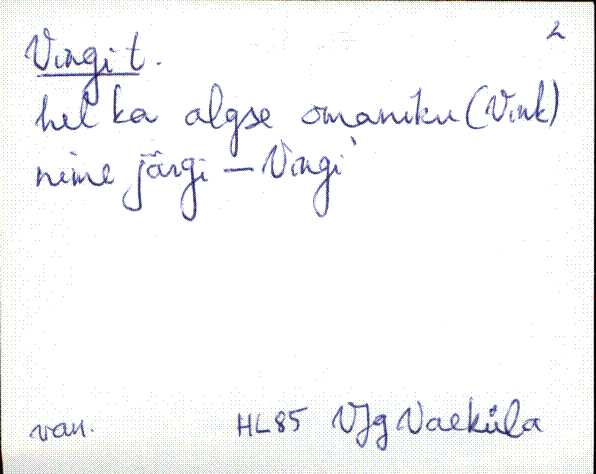 2
Vingi t.
hel ka algse omaniku (Vink)
nime järgi – Vingi`
van. HL85 VJg Vaeküla